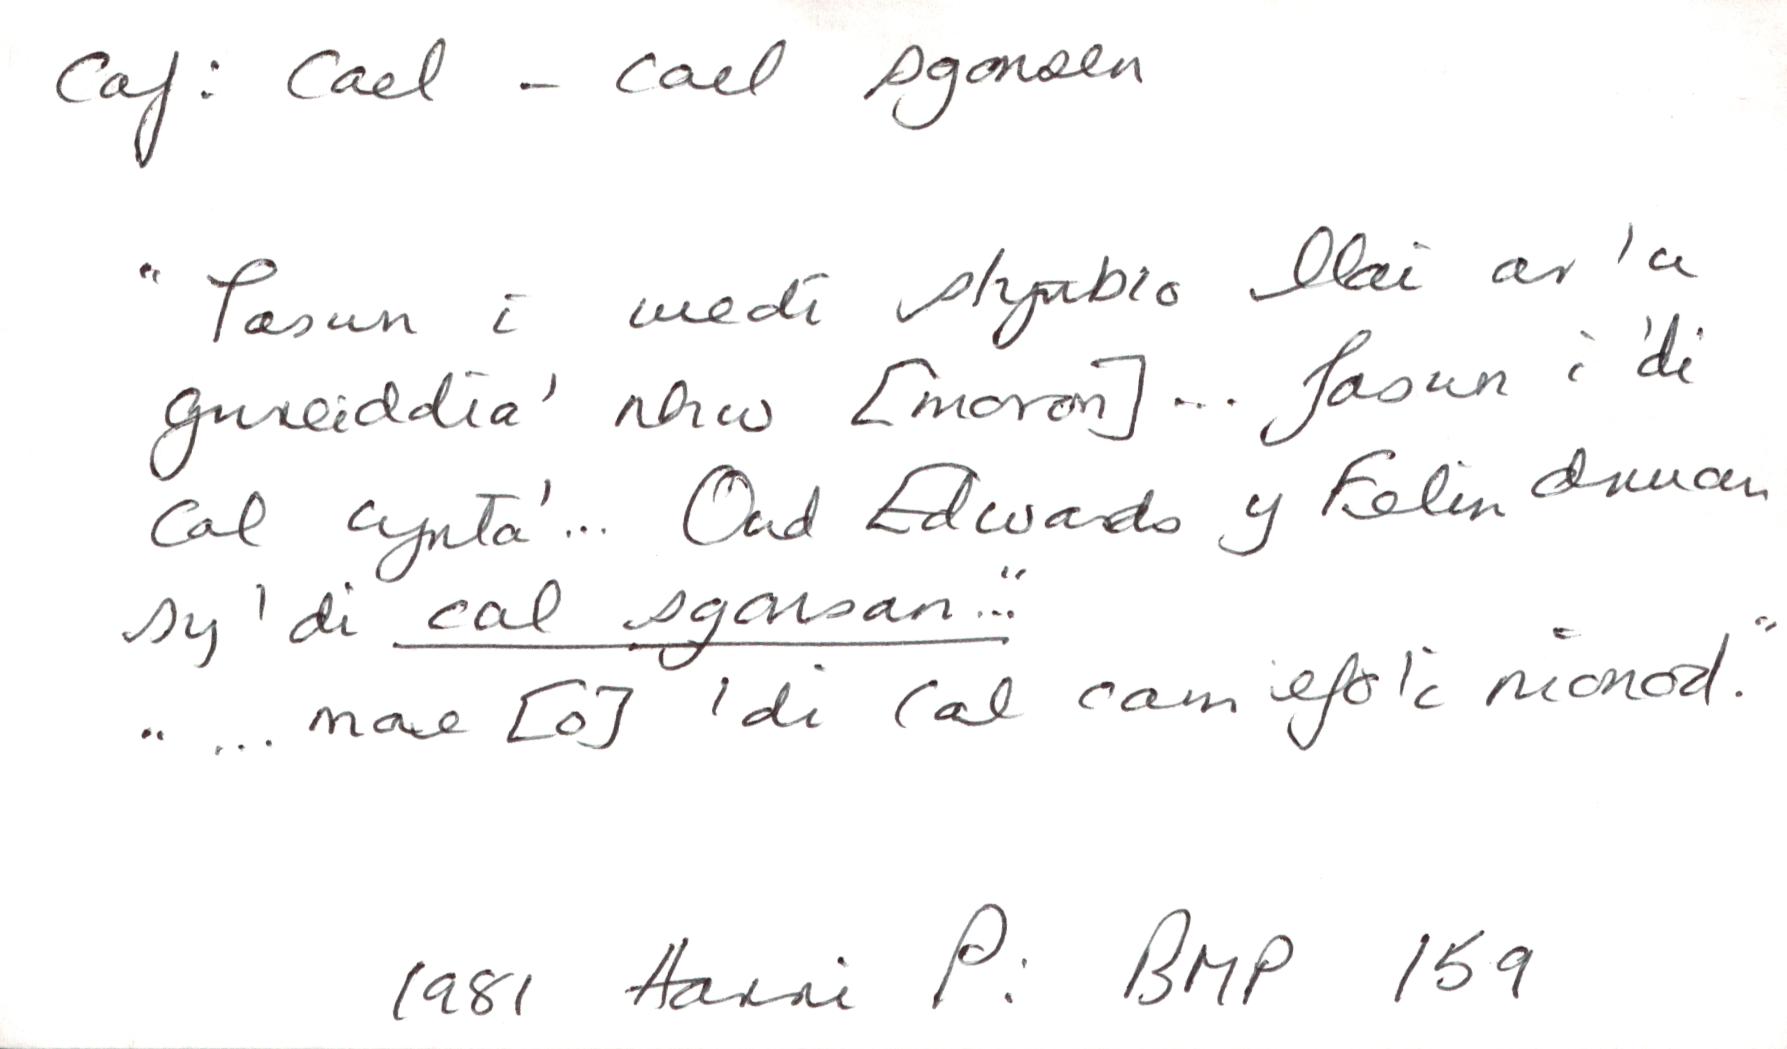 Caf: Cael - cael sgonsen
"Tasun i wedi stydio llai ar 'u
gwreiddia' nhw [moron]... fasun i 'di
cal cynta'... Ond Edwards y Felin druan
sy 'di cal sgonsan..."
"... mae [o] 'di cal cam efo'i nionod."
1981 Harri P: BMP 159